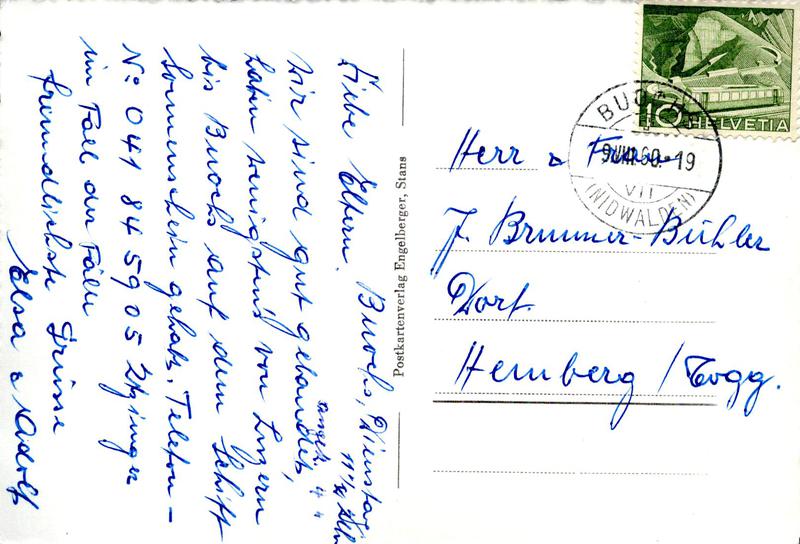 Buochs, Dienstag
11 1/2 Uhr
Liebe Eltern.
Wir sind gut gelandet,
haben wenigstens von Luzern
bis Buochs auf dem Schiff
Sonnenschein gehabt. Telefon-
No: 041 84 59 05
im Fall der Fälle
freundlichste Grüsse
Elsa & Adolf
Postkartenverlag Engelberger, Stans
10 HELVETIA
BUOCHS
9.VIII.60.-19
VII
(NIDWALDEN)
Herr & Frau
J. Brunner-Bühler
Dorf.
Hemberg /Togg.